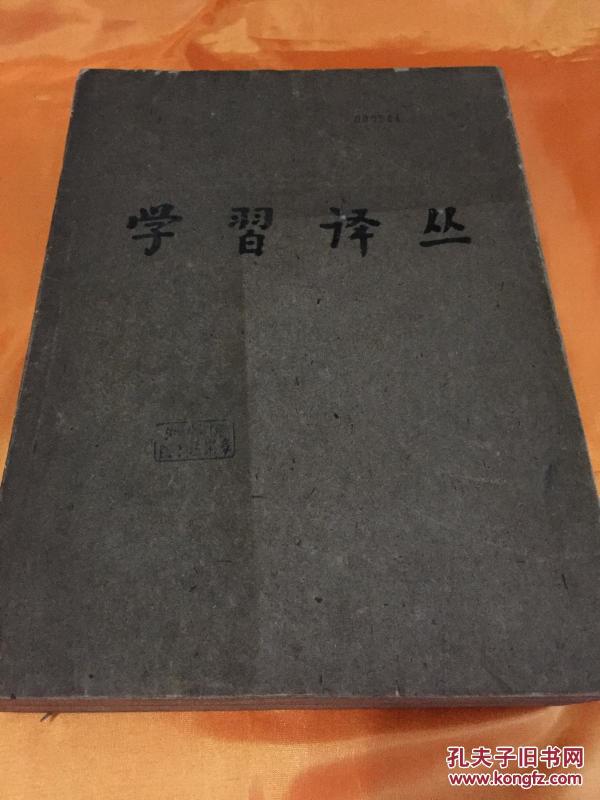 学習译丛
孔夫子旧书网
www.kongfz.com